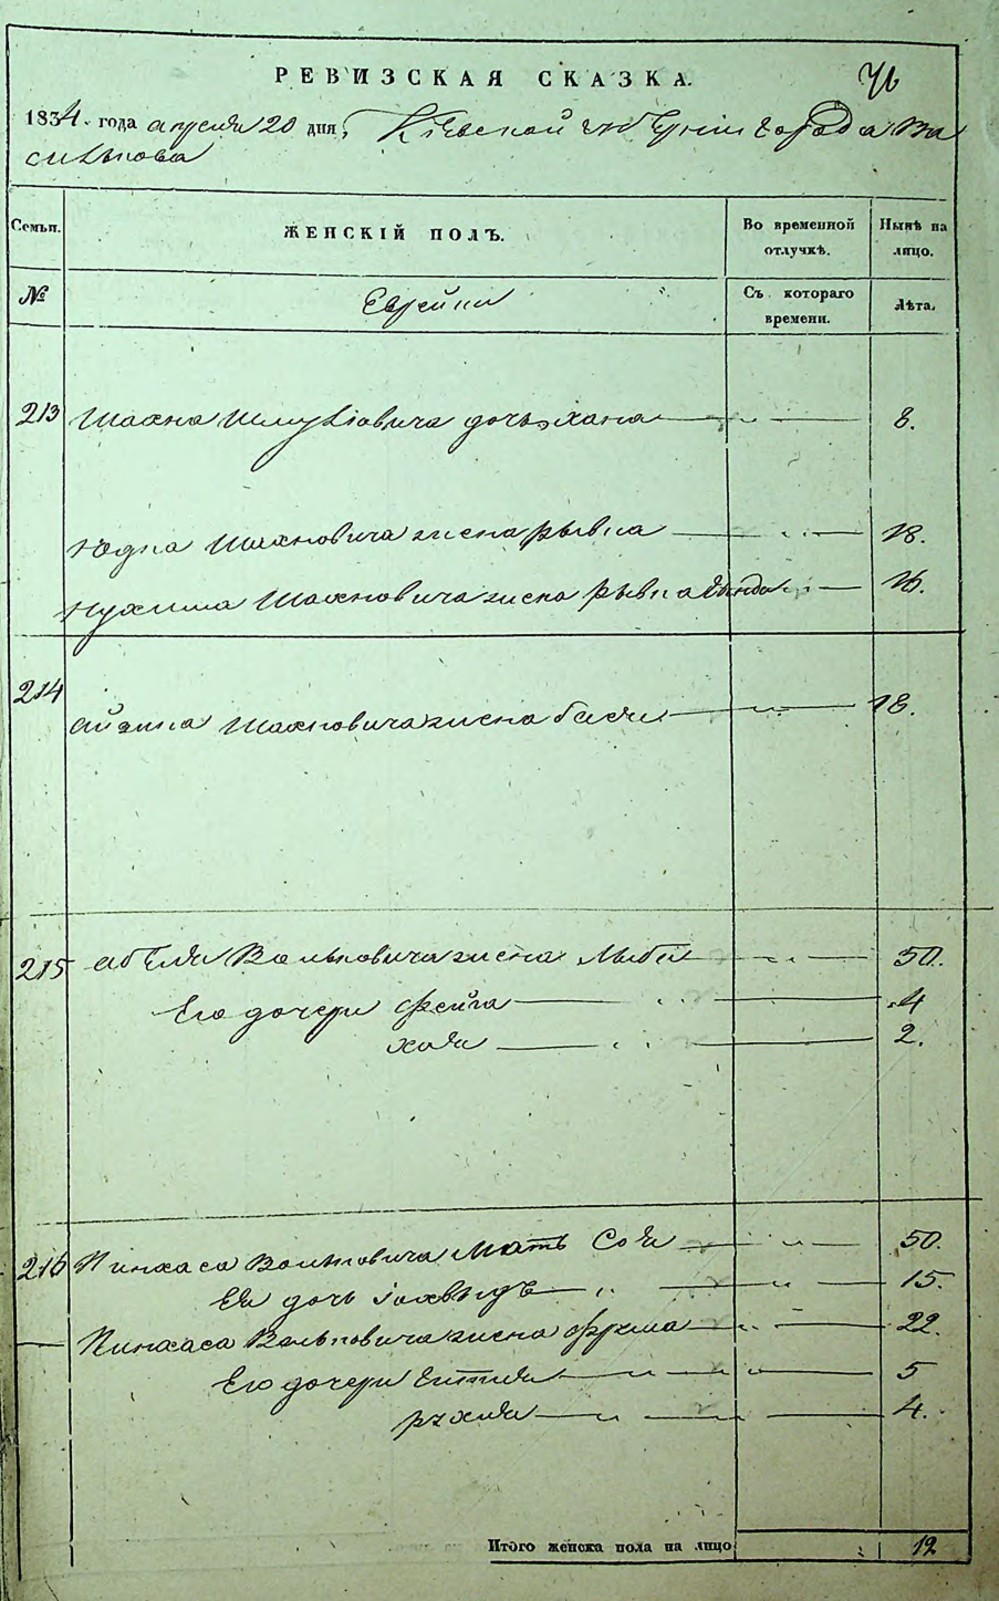 РЕВИЗСКАЯ СКАЗКА. 76
1834. года апреля 20 дня, Кіевской губерніи города Ва
силькова
Семьи. ЖЕНСКІЙ ПОЛЪ. Во временной отлучкѣ. Нынѣ на лицо.
№ Еврейки Съ котораго времени. Лѣта.
213 Шахна Шмуліовича дочь хана 8.
Юдка Шахновича жена рывка 18.
Нухима Шахновича жена рывка 16.
214 айзика Шахновича жена бася 18.
215 абеля Вольковича жена 50.
Его дочери фейга 4
хая 2.
216 Пинхаса Вольковича мать Сося 50.
Ея дочь іохвыдъ 15.
Пинхаса Вольковича жена фрума 22.
Его дочери 5
рухля 4.
Итого женска пола на лицо 12